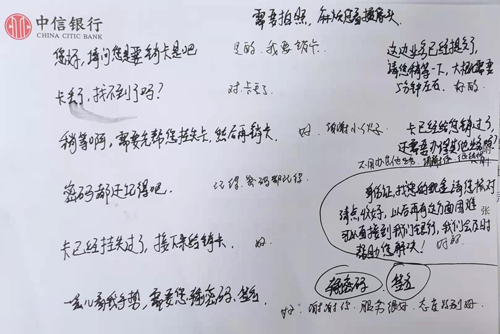 中信银行
CHINA CITIC BANK
需要拍照,麻烦您看摄像头
您好,请问您是要销卡是吧
是的,我要销卡
卡丢了,找不到了吗?
对.卡丢了
稍等啊,需要先帮您挂失卡,然后再销卡
好,谢谢小伙子
密码都还记得吧.
记得,密码都记得
卡已经挂失过了,接下来给销卡.
好
一会儿看我手势,需要您输密码、签名
好
这边业务已经提交了,
请您稍等一下,大概需要
5分钟左右.好的
卡已经给您销过了,
还需要办理其他业务吗?
身份证、找您的现金请您核对
请点收好,以后再有这方面困难
可以直接到我们银行,我们会及时
帮助您解决!好的
张
输密码 签名
谢谢你,服务很好,态度特别好